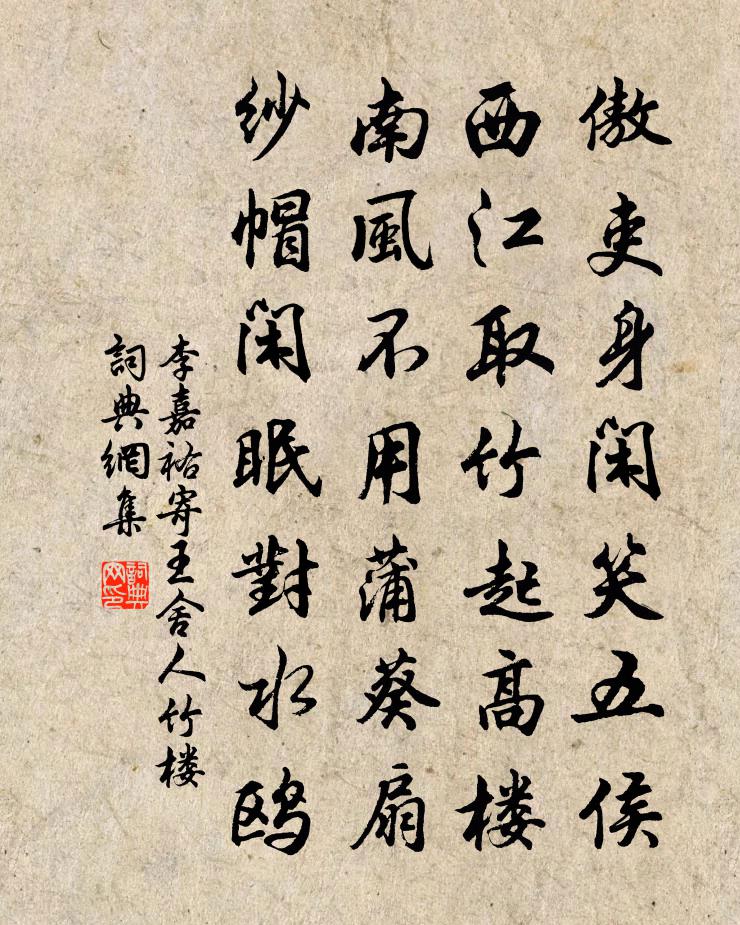 傲吏身閑笑五侯
西江取竹起高楼
南風不用蒲葵扇
纱帽閑眠對水鸥
李嘉祐寄王舍人竹楼
詞典網集
詞典网印